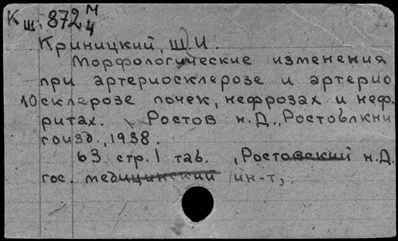 К Ш 872 М/4
Криницкий, Ш.И.
Морфологические изменения
при артериосклерозе и артерио
10 склерозе почек, нефрозах и неф-
ритах. Ростов н.Д., Ростовлкни
гоизд., 1938.
63 стр. 1 таб. , Ростовский н.Д.
гос. медицинский ин-т,